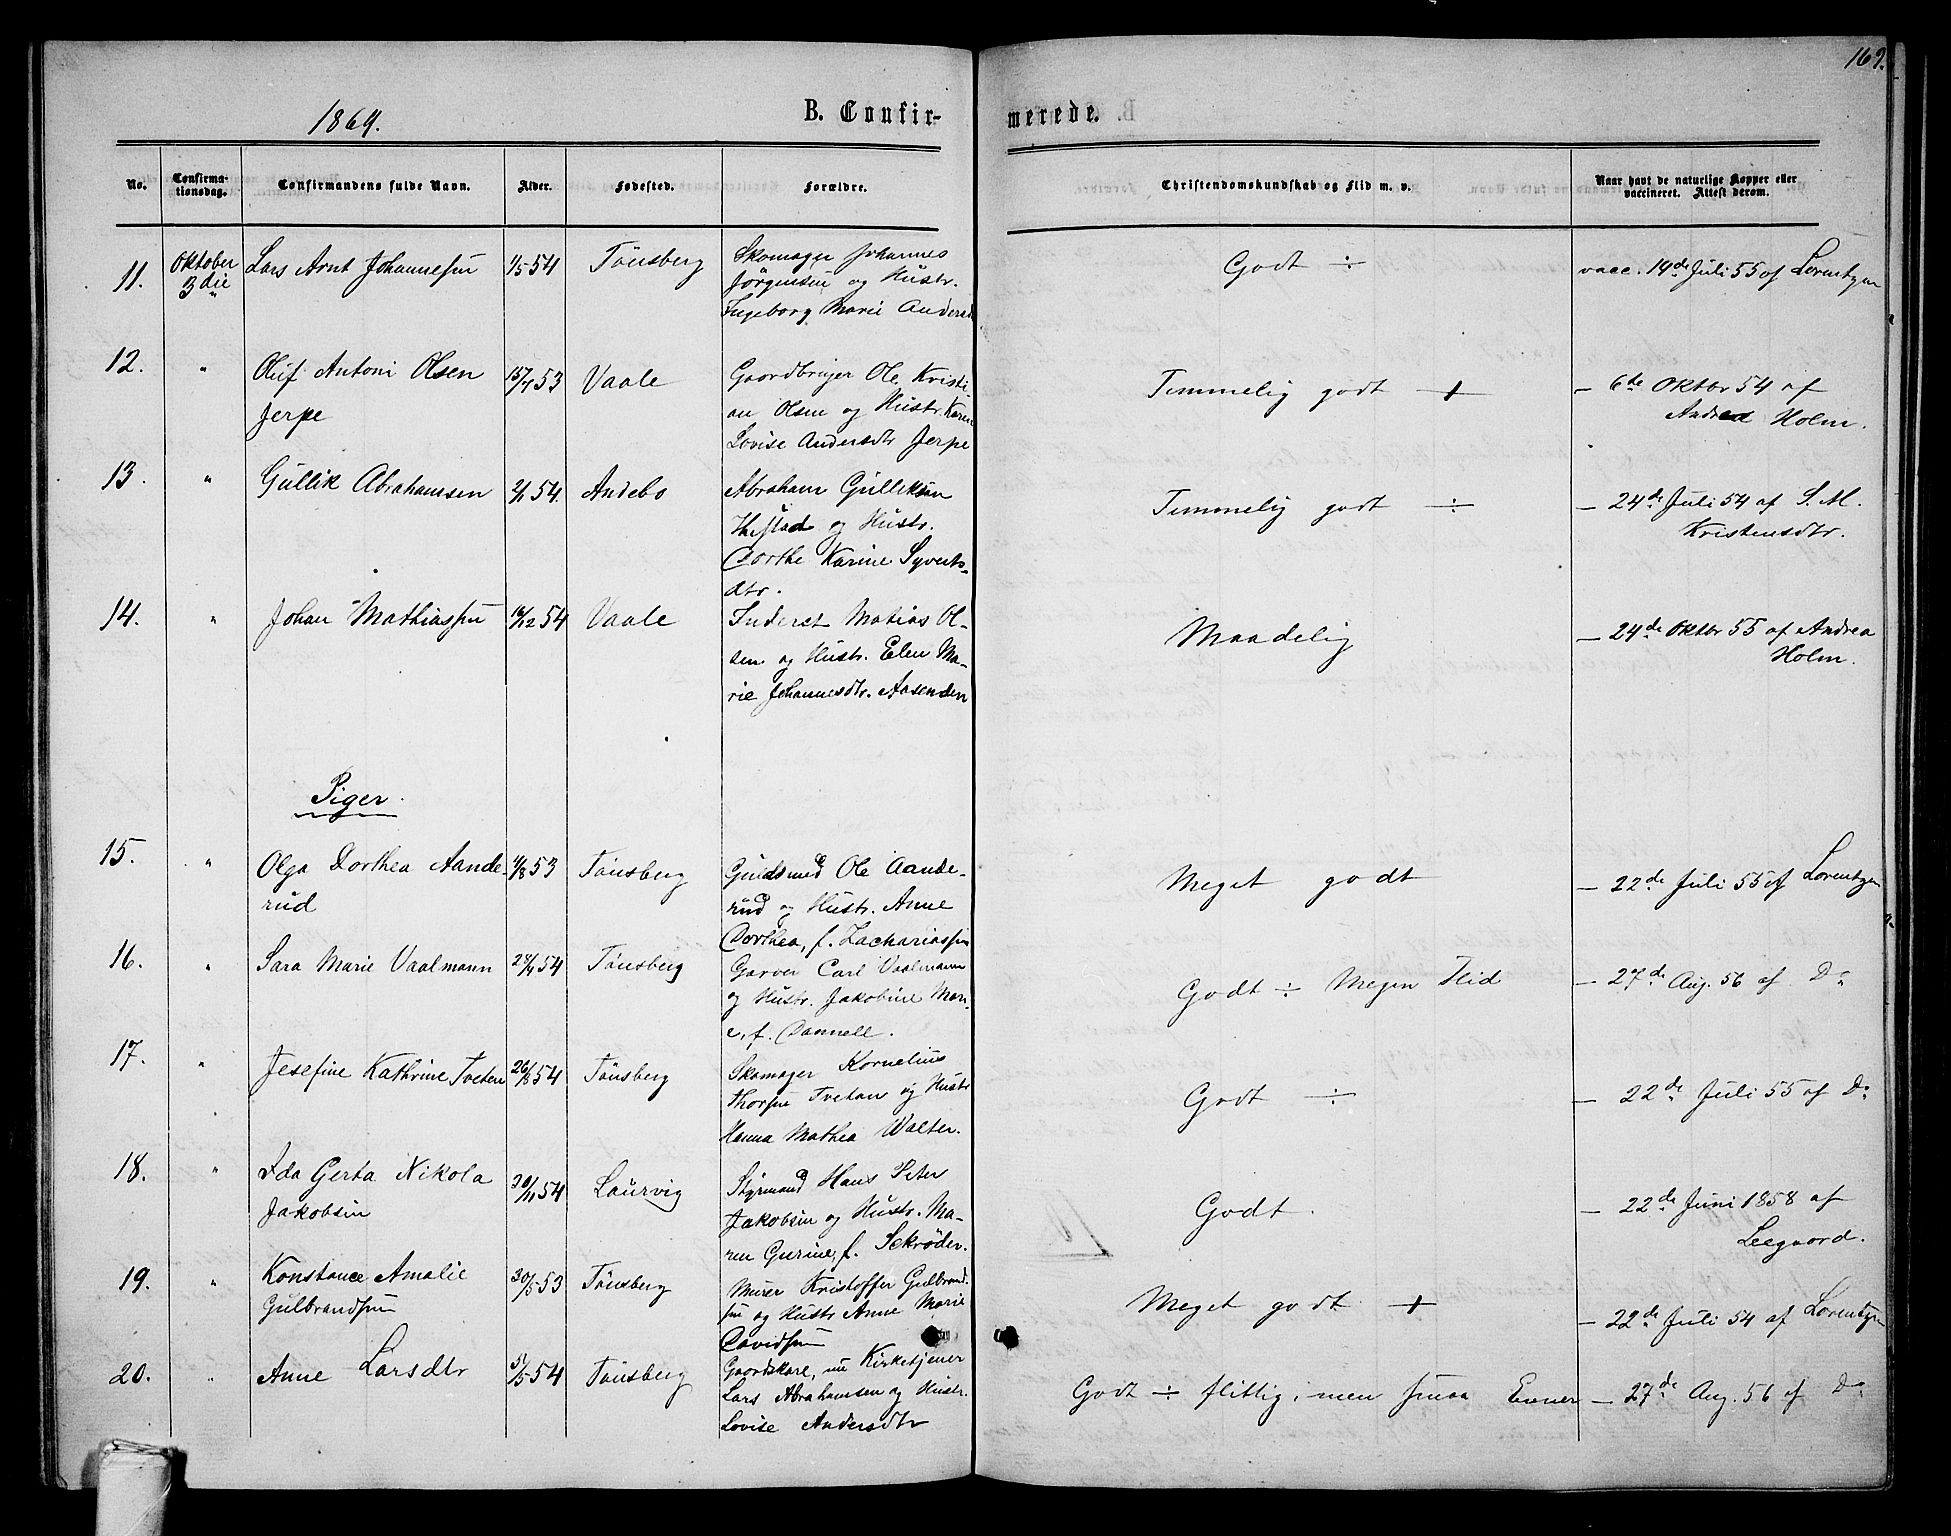 169.
1869.
B. Confir-
merede.
No.
Confirma-
tionsdag.
Confirmandens fulde Navn.
Alder.
Fødested.
Forældre.
Christendomskundskab og Flid m. v.
Naar havt de naturlige Kopper eller
vaccineret. Attest derom.
11. Oktober Lars Arnt Johannesen 1/5 54 Tönsberg Skomager Johannes Godt ÷ vacc. 19de Juli 55 af Lorentzen
3die Jörgensen og Hustr.
Ingeborg Marie Andersd
12. " Oluf Antoni Olsen 15/7 53 Vaale Gaardbruger Ole Kristi- Temmelig godt + — 6te Oktbr 54 af
Jerpe an Olsen og Hustr. Karen Andrea Holm.
Lovise Andersdtr Jerpe
13. " Gullik Abrahamsen 2/1 54. Andebo Abraham Gulliksen Temmelig godt ÷ — 24de Juli 54 af S. M.
og Hustr. Kristensdtr.
Dorthe Karine Syverts-
dtr.
14. " Johan Mathiassen 16/12 54 Vaale Inderst Matias Ol- Maadelig — 24de Oktbr 55 af Andrea
sen og Hustr. Elen Ma- Holm.
rie Johannesdtr. Aasenden
Piger.
15. " Olga Dorthea Aande- 11/8 53 Tönsberg Guldsmed Ole Aande- Meget godt — 22de Juli 55 af Lorentzen
rud rud og Hustr. Anne
Dorthea, f. Zachariassen
16. " Sara Marie Vaalmann 24/4 54 Tönsberg Garver Carl Vaalmann Godt ÷ Megen Flid — 27de Aug. 56 af Do
og Hustr. Jakobine Mari-
e, f. Dannell.
17. " Josefine Kathrine Tveten 26/8 54 Tönsberg Skomager Kornelius Godt ÷ — 22de Juli 55 af Do
Thorsen Tvetan og Hustr
Hanna Mathea Walter.
18. " Ida Gerta Nikola 20/11 54 Laurvig Styrmand Hans Peter Godt. — 22de Juni 1858 af
Jakobsen Jakobsen og Hustr. Ma- Leegaard.
ren Gurine, f. Sckröder.
19. " Konstance Amalie 30/5 53 Tönsberg Murer Kristoffer Gulbrand- Meget godt + — 22de Juli 54 af Lorentzen
Gulbrandsen sen og Hustr Anne Marie
Davidsen
20. " Anne Larsdtr 31/5 54 Tönsberg Gaardskarl, nu Kirketjener Godt ÷ flittig, men smaa Evner — 27de Aug. 56 af Do
Lars Abrahamsen og Hustr.
Lovise Andersdtr